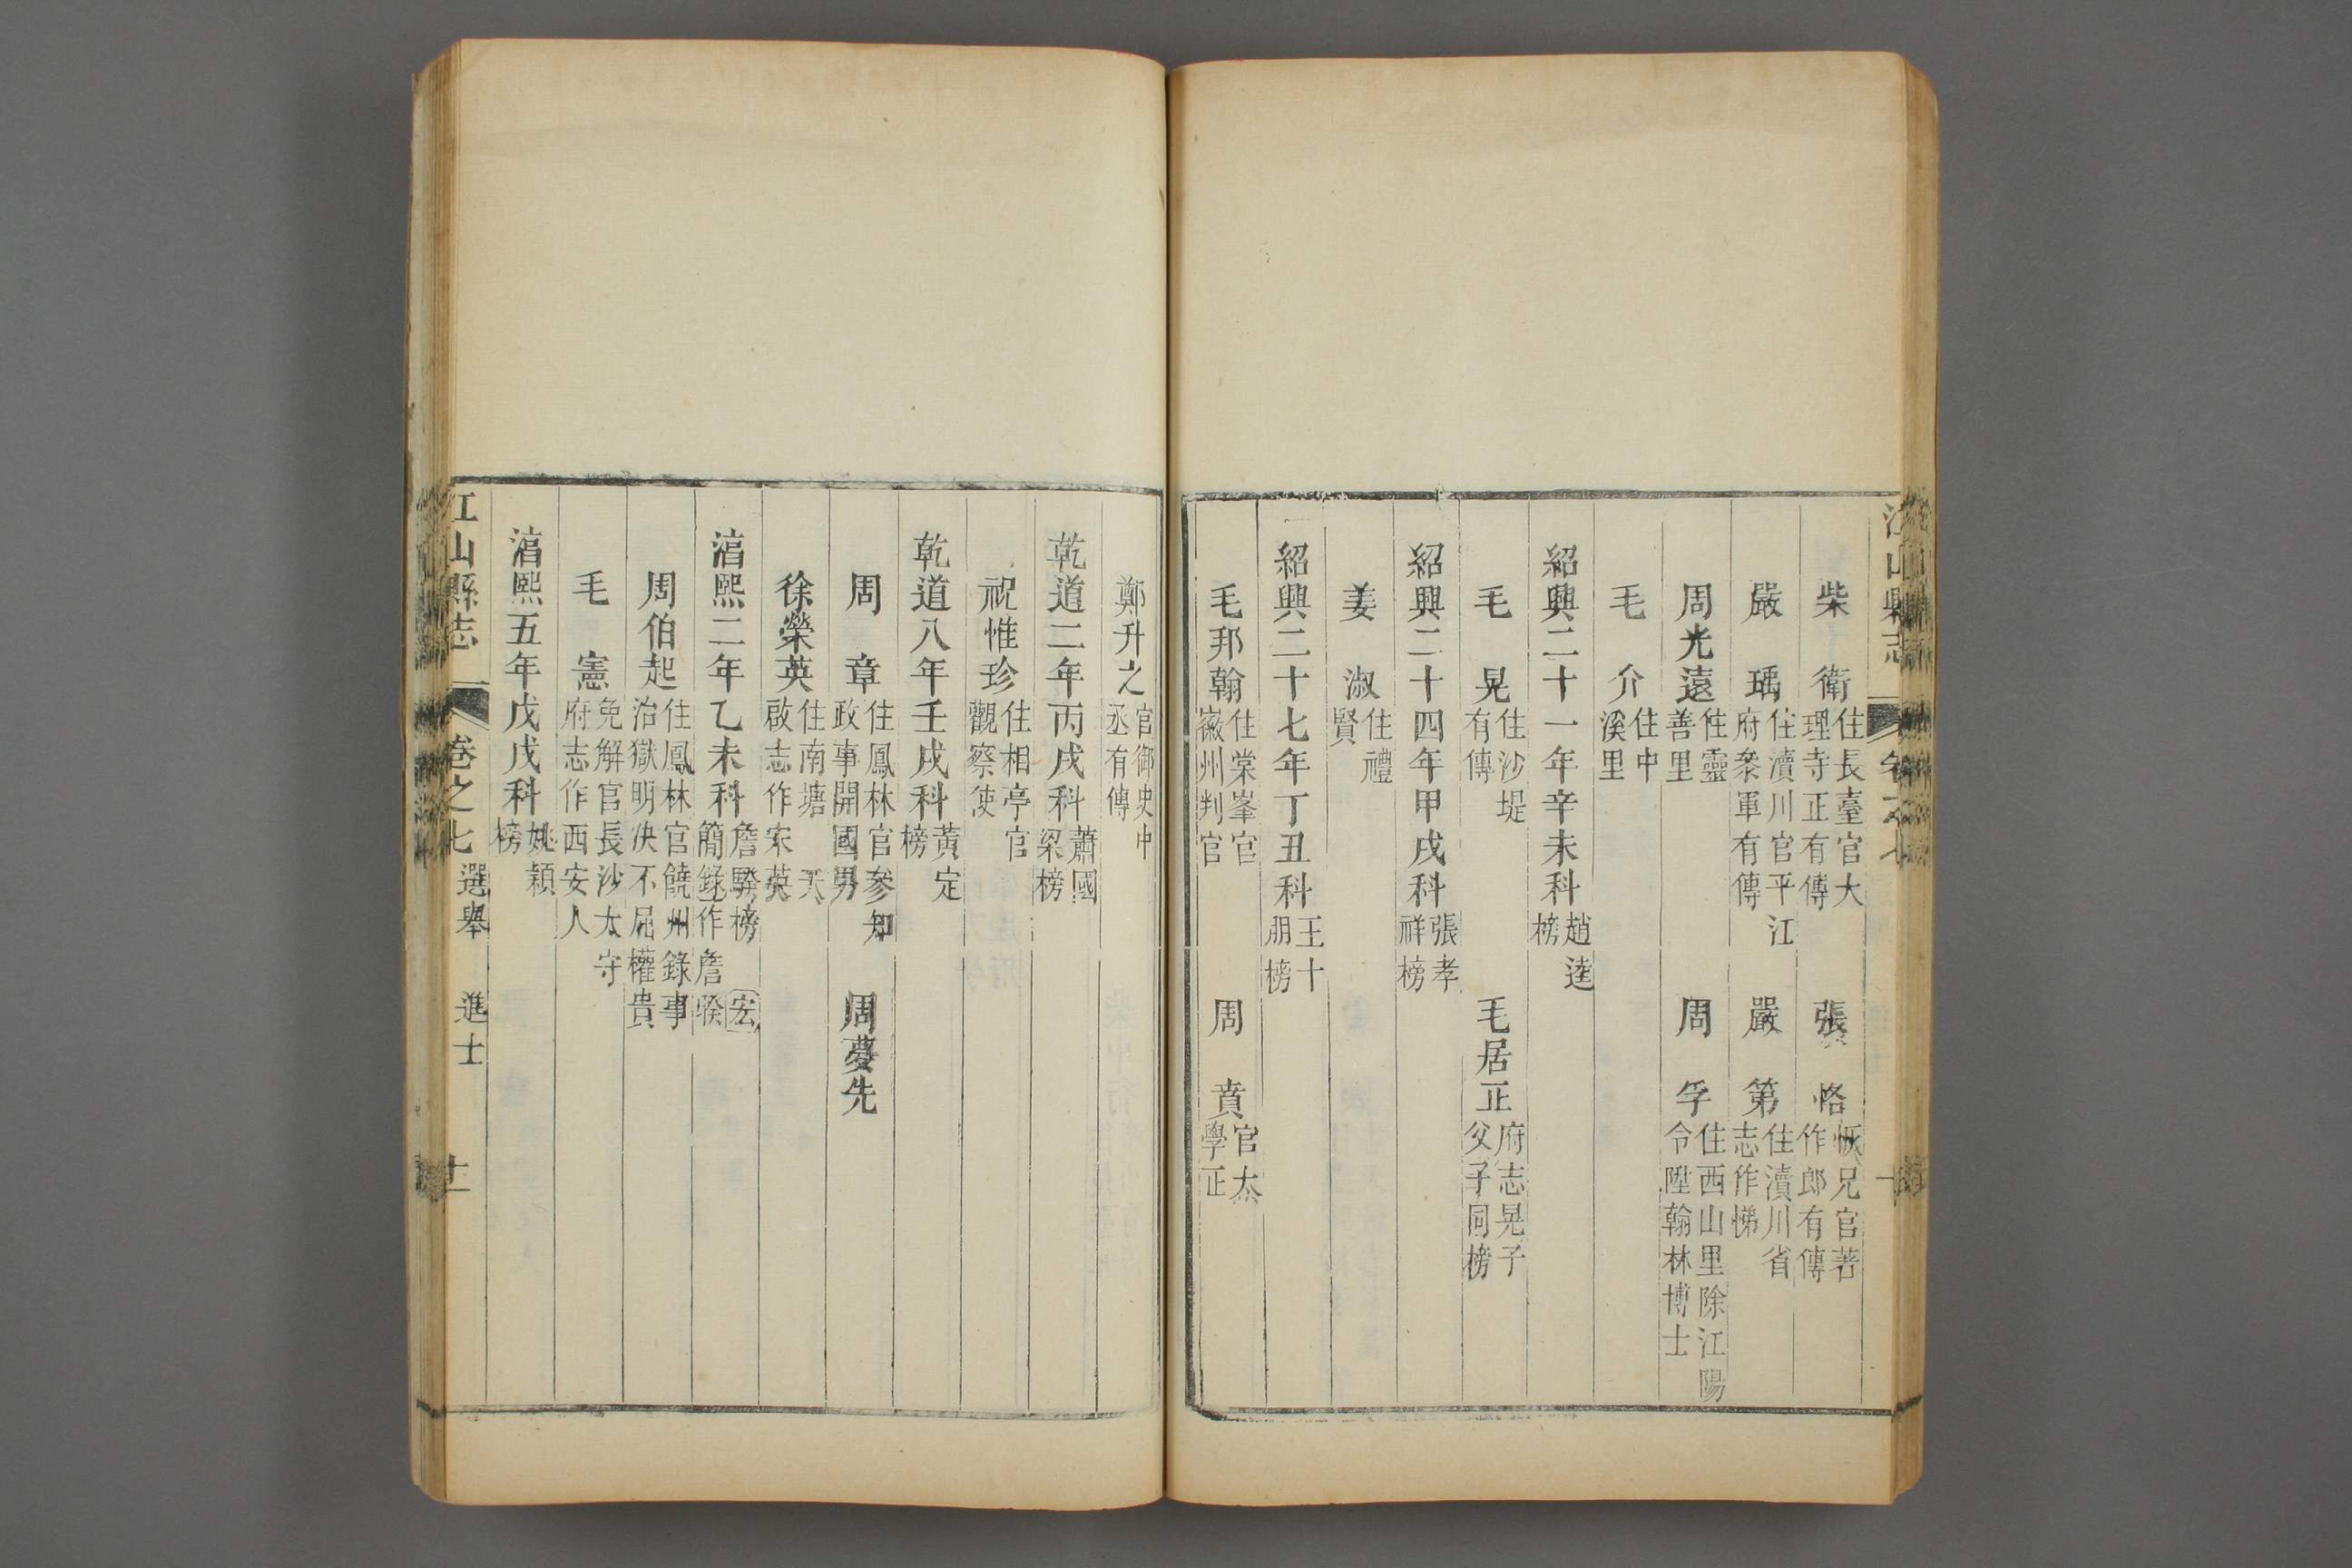 江山縣志　卷之七
柴　衛　住長臺官大理寺正有傳　張　恪　恢兄官著作郎有傳
嚴　瑀　住瀆川官平江府叅軍有傳　嚴　第　住瀆川省志作悌
周光遠　住靈善里　周　孚　住西山里除江陽令陞翰林博士
毛　介　住中溪里
紹興二十一年辛未科　趙逵榜
毛　晃　住沙堤有傳　毛居正　府志晃子父子同榜
紹興二十四年甲戌科　張孝祥榜
姜　淑　住禮賢
紹興二十七年丁丑科　王十朋榜
毛邦翰　住棠峯官徽州判官　周　賁　官太學正
鄭升之　官御史中丞有傳
乾道二年丙戌科　蕭國梁榜
祝惟珍　住相亭官觀察使
乾道八年壬戌科　黃定榜
周　章　住鳳林官參知政事開國男　周夢先
徐榮英　住南塘　天啟志作宋英
淳熙二年乙未科　詹騤榜　宏簡錄作詹騤
周伯起　住鳳林官饒州錄事治獄明決不屈權貴
毛　憲　免解官長沙太守府志作西安人
淳熙五年戊戌科　姚穎榜
江山縣志　卷之七　選舉　進士　十二